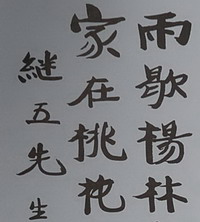 雨歇楊林
家在桃
继五先生